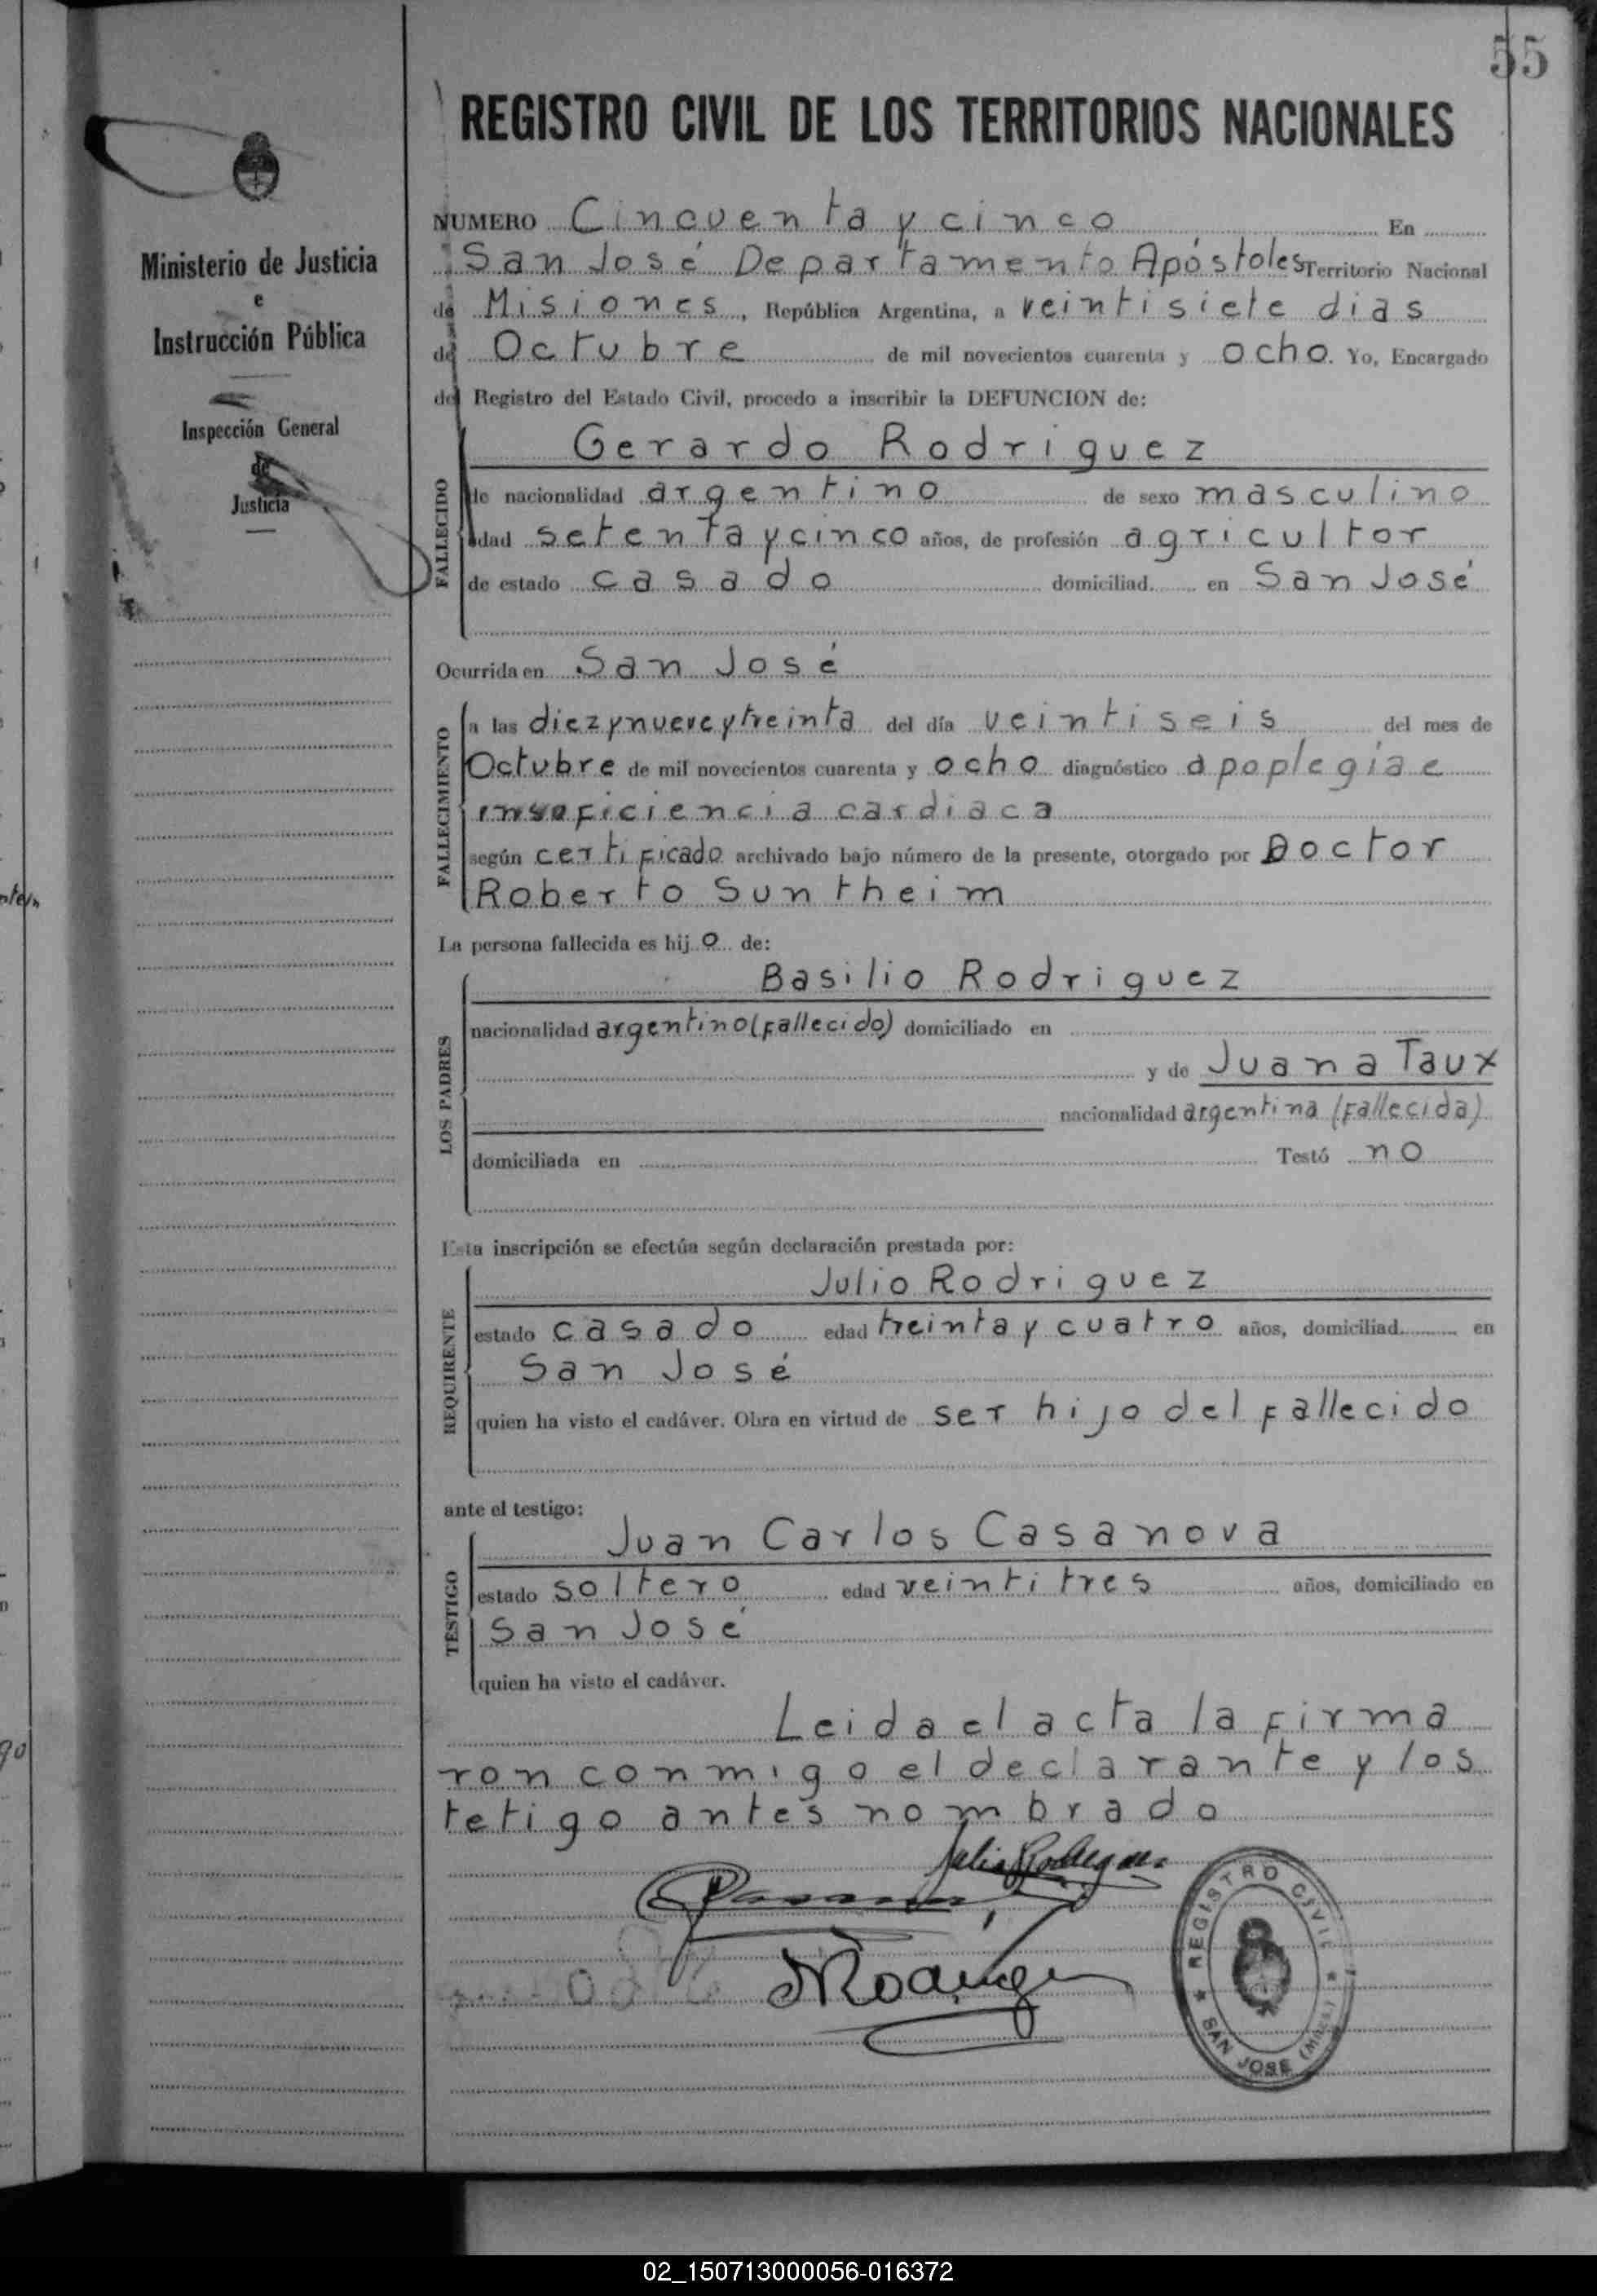 55
REGISTRO CIVIL DE LOS TERRITORIOS NACIONALES
Ministerio de Justicia
e
Instrucción Pública
Inspección General
de
Justicia
NUMERO Cincuenta y cinco En
San José Departamento Apóstoles Territorio Nacional
de Misiones, República Argentina, a veintisiete dias
de Octubre de mil novecientos cuarenta y ocho. Yo, Encargado
del Registro del Estado Civil, procedo a inscribir la DEFUNCION de:
FALLECIDO
Gerardo Rodriguez
de nacionalidad argentino de sexo masculino
edad setenta y cinco años, de profesión agricultor
de estado casado domiciliad en San José
Ocurrida en San José
FALLECIMIENTO
a las diez y nueve y treinta del día veintiseis del mes de
Octubre de mil novecientos cuarenta y ocho diagnóstico apoplegia e
insuficiencia cardiaca
según certificado archivado bajo número de la presente, otorgado por Doctor
Roberto Suntheim
La persona fallecida es hijo de:
LOS PADRES
Basilio Rodriguez
nacionalidad argentino (fallecido) domiciliado en
y de Juana Taux
nacionalidad argentina (fallecida)
domiciliada en Testó no
Esta inscripción se efectúa según declaración prestada por:
REQUIRENTE
Julio Rodriguez
estado casado edad treinta y cuatro años, domiciliad en
San José
quien ha visto el cadáver. Obra en virtud de ser hijo del fallecido
ante el testigo:
TESTIGO
Juan Carlos Casanova
estado soltero edad veintitres años, domiciliado en
San José
quien ha visto el cadáver.
Leida el acta la firma
ron conmigo el declarante y los
tetigo antes nombrado
Julio Rodriguez
REGISTRO CIVIL
SAN JOSE (MNES)
02_150713000056-016372